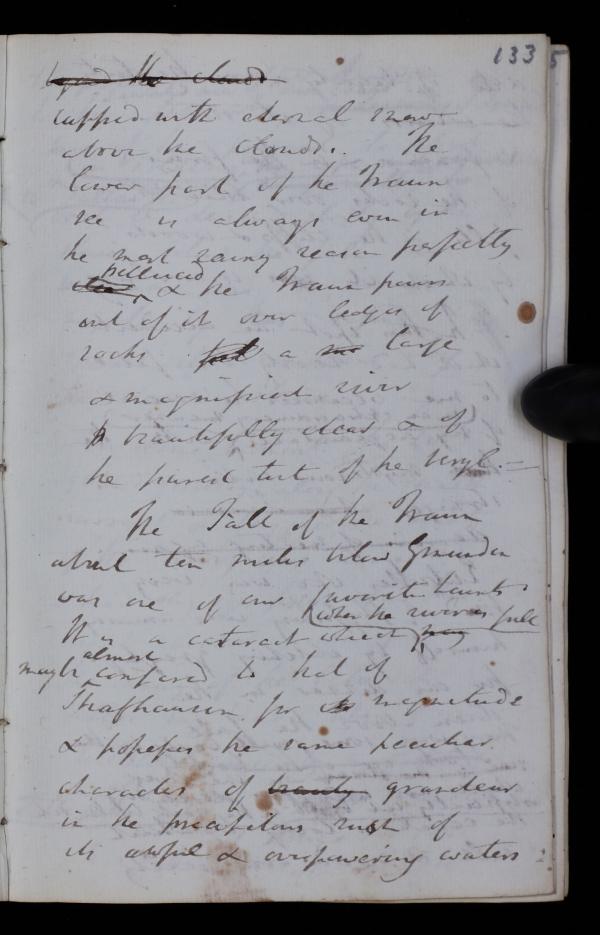 133
beyond the clouds
capped with eternal snow
above the clouds. The
lower part of the Traun
see is always even in
the most rainy season perfectly
pellucid
& the Traun pours
out of it over ledges of
rocks a large
& magnificent river
beautifully clear & of
the purest tint of the beryl. —
The Fall of the Traun
about ten miles below Gmunden
was one of our favorite haunts
(when the river is full
It is a cataract which may
almost
may be compared to that of
Shafhausen for its magnitude
& possesses the same peculiar
character of beauty grandeur
in the precipitous rush of
its awful & overpowering waters